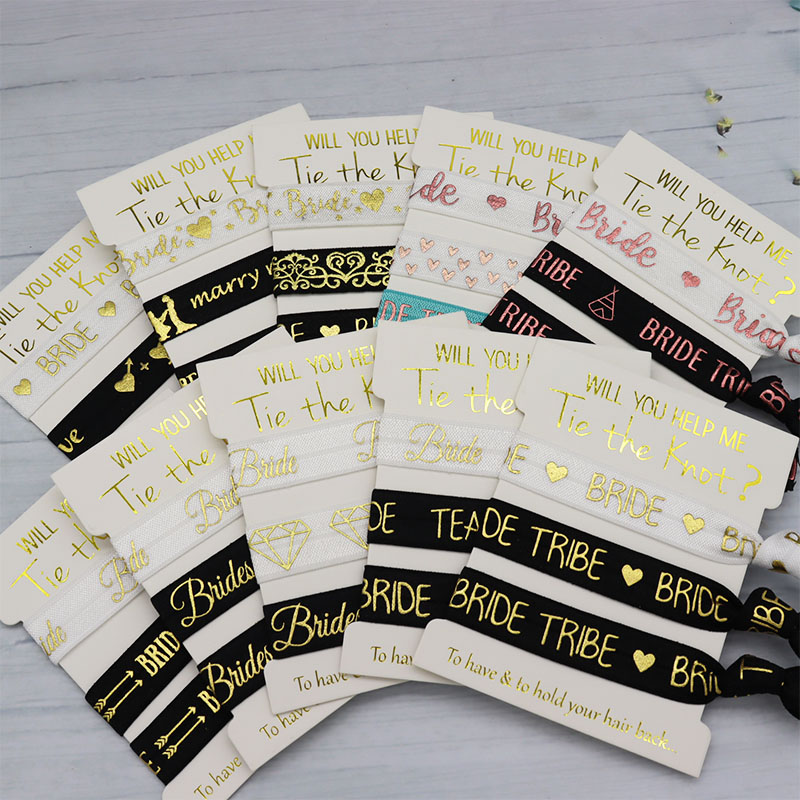 WILL YOU HELP ME
Tie the Kn
BRIDE
+
ve
WILL YOU HELP
Tie the Kno
Bride Brid
marry
WILL YOU HELP
Tie the Kn
Bride
BRIDE
WILL YOU HELP ME
Tie the Kn
Bride Bri
DE TRIB
WILL YOU HELP ME
Tie the Knot?
Bride Bride
TRIBE BRIDE TRIBE
TRIBE BRIDE TRIB
WILL YOU HELP
Tie the
Bride
BRID
To have
WILL YOU HELP
Tie the
Bride
Brides
Brides
To have
WILL YOU HELP ME
Tie the Kn
Bride
Brides
To have &
WILL YOU HELP ME
Tie the Kn
Bride
DE TEA
BRIDE
To have
WILL YOU HELP ME
Tie the Knot?
DE BRIDE BRID
DE TRIBE BRIDE TRIBE
BRIDE TRIBE BRID T
To have & to hold your hair back..